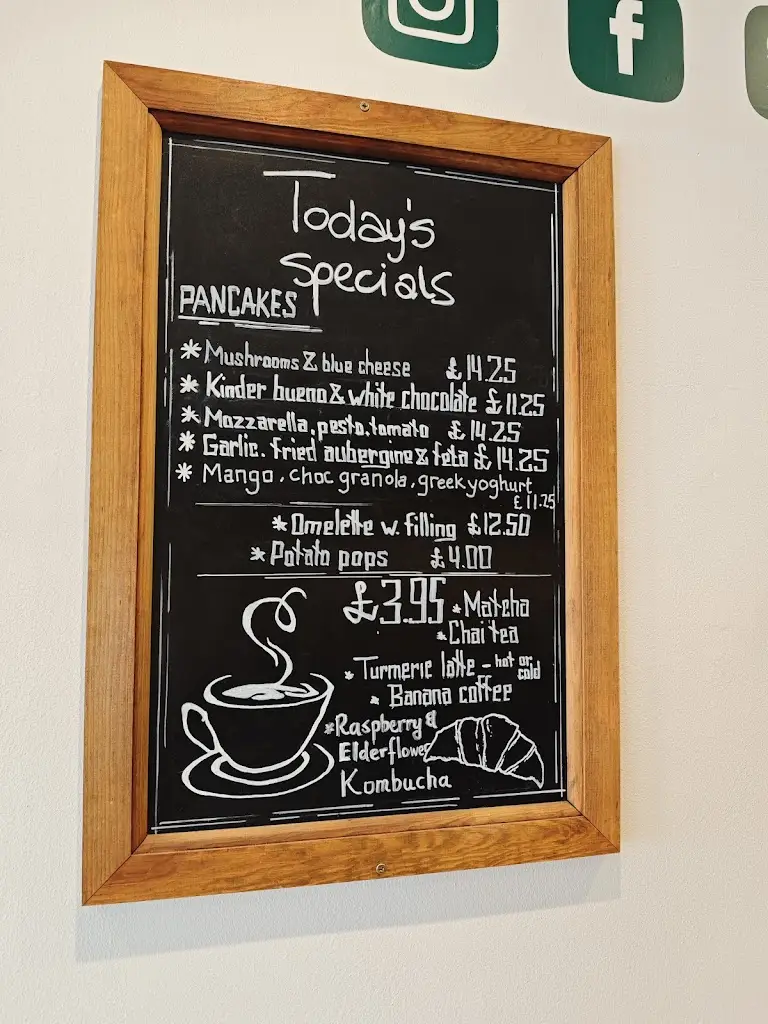 Today's
Specials
PANCAKES
* Mushrooms & blue cheese £14.25
* Kinder bueno & white chocolate £11.25
* Mozzarella, pesto, tomato £14.25
* Garlic. fried aubergine & feta £14.25
* Mango, choc granola, greek yoghurt
£11.25
* Omelette w. filling £12.50
* Potato pops £4.00
£3.95 * Matcha
* Chai tea
* Turmeric latte - hot or cold
* Banana coffee
* Raspberry &
Elderflower
Kombucha